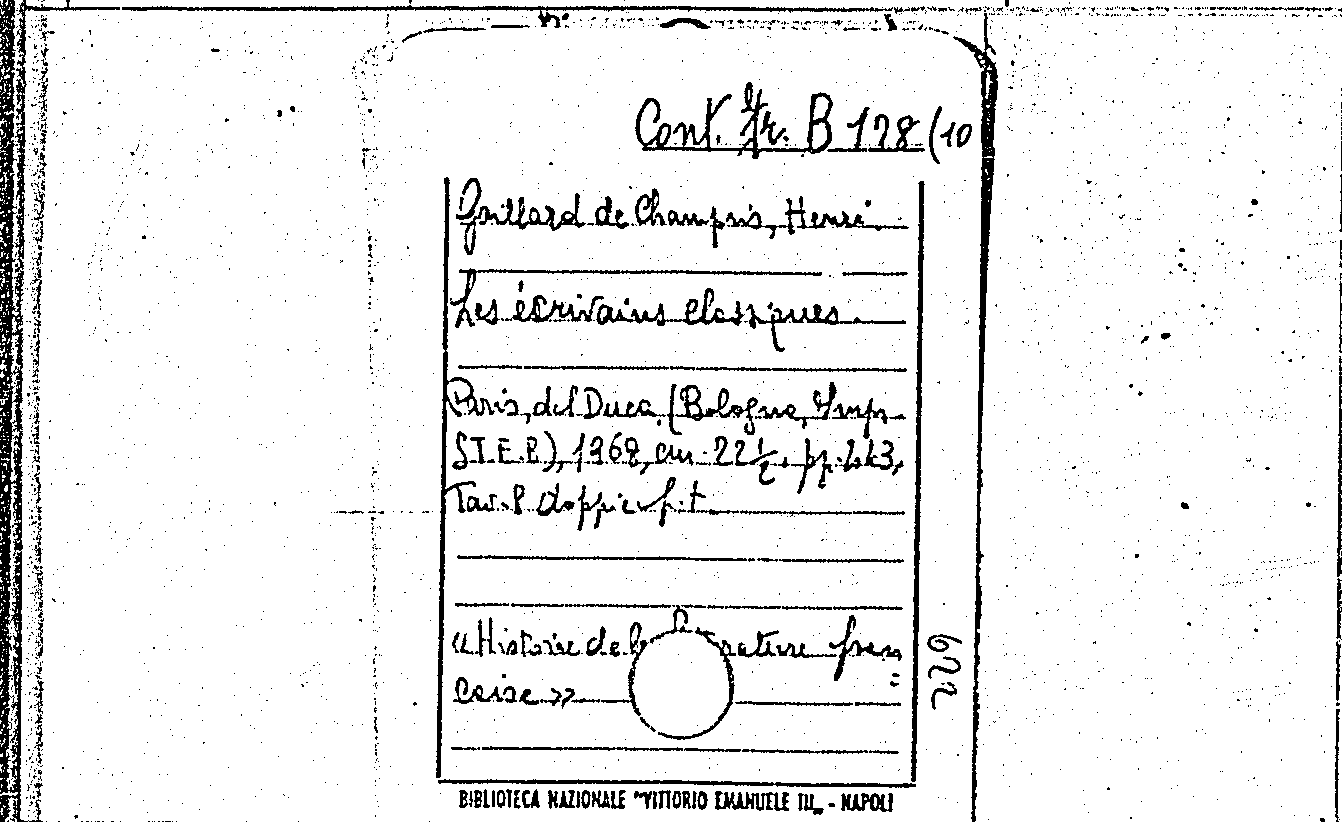 Cont. fr. B 128 (10
Gaillard de Champris, Henri
Les écrivains classiques.
Paris, del Duca (Bologna, Imp.
S.T.E.B.), 1968, cm. 22 1/2, pp.
Tav. 8 doppie f.t.
« Histoire de la fran=
çaise »
622
BIBLIOTECA NAZIONALE "VITTORIO EMANUELE III„ - NAPOLI